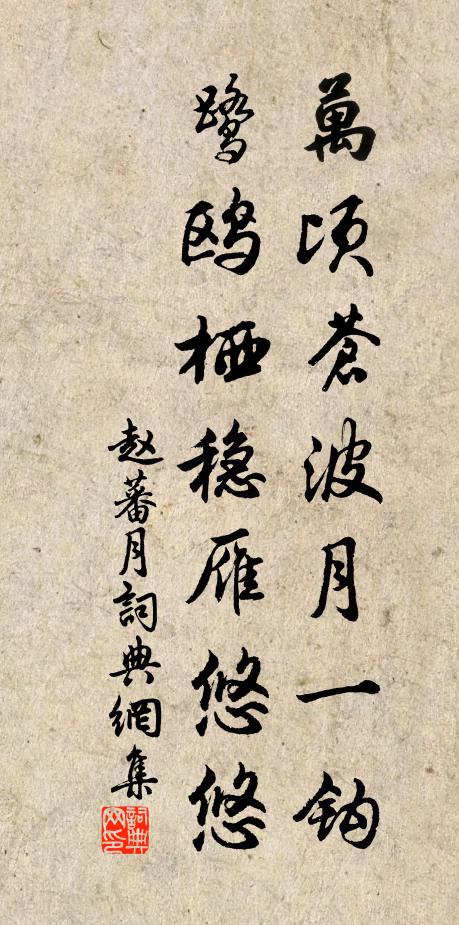 萬頃蒼波月一鈎
鹭鸥栖稳雁悠悠
赵蕃月詞典網集
詞典网印